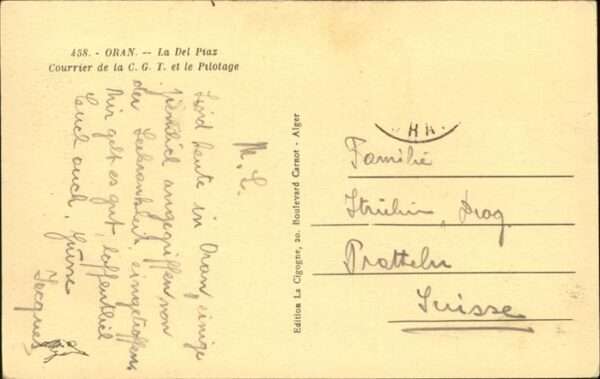 458. - ORAN. -- La Del Piaz
Courrier de la C. G. T. et le Pilotage
M. L.
Sind heute in Oran, einige
ziemlich angegriffen von
der Seekrankheit eingetroffen.
Mir geht es gut, hoffentlich
Euch auch. Grüsse
Jacques
Edition La Cigogne, 20. Boulevard Carnot - Alger
Familie
Strübin,
Pratteln
Suisse